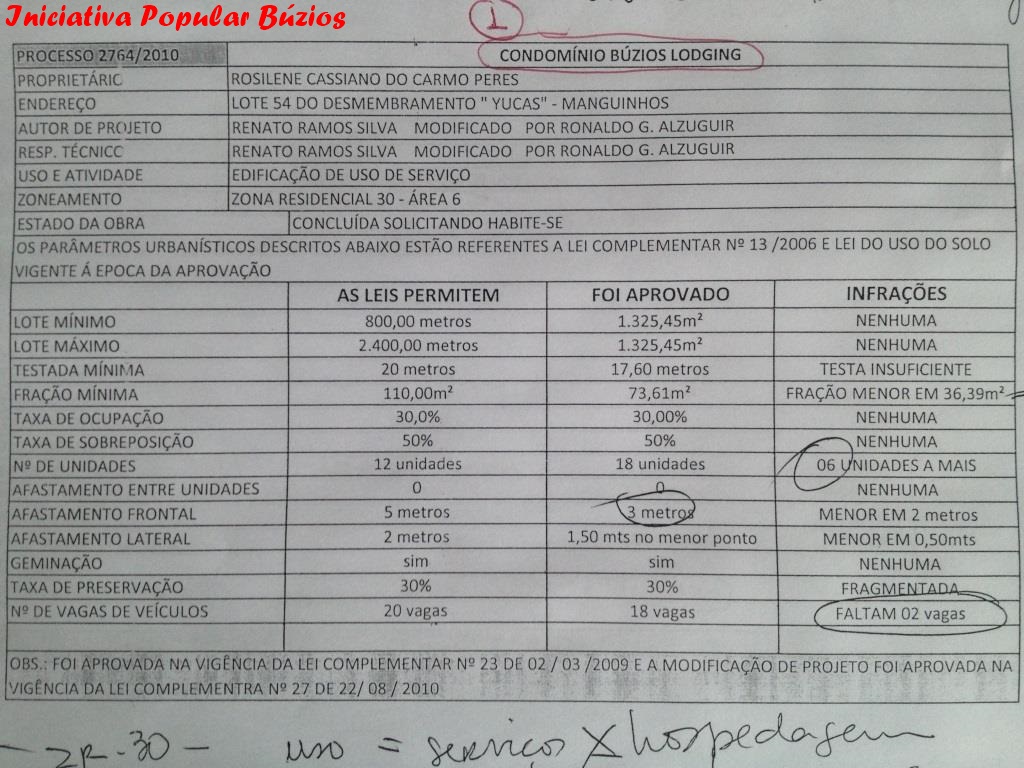 Iniciativa Popular Búzios
1
PROCESSO 2764/2010 CONDOMÍNIO BÚZIOS LODGING
PROPRIETÁRIO ROSILENE CASSIANO DO CARMO PERES
ENDEREÇO LOTE 54 DO DESMEMBRAMENTO " YUCAS" - MANGUINHOS
AUTOR DE PROJETO RENATO RAMOS SILVA MODIFICADO POR RONALDO G. ALZUGUIR
RESP. TÉCNICO RENATO RAMOS SILVA MODIFICADO POR RONALDO G. ALZUGUIR
USO E ATIVIDADE EDIFICAÇÃO DE USO DE SERVIÇO
ZONEAMENTO ZONA RESIDENCIAL 30 - ÁREA 6
ESTADO DA OBRA CONCLUÍDA SOLICITANDO HABITE-SE
OS PARÂMETROS URBANÍSTICOS DESCRITOS ABAIXO ESTÃO REFERENTES A LEI COMPLEMENTAR Nº 13 /2006 E LEI DO USO DO SOLO
VIGENTE Á EPOCA DA APROVAÇÃO
AS LEIS PERMITEM FOI APROVADO INFRAÇÕES
LOTE MÍNIMO 800,00 metros 1.325,45m² NENHUMA
LOTE MÁXIMO 2.400,00 metros 1.325,45m² NENHUMA
TESTADA MÍNIMA 20 metros 17,60 metros TESTA INSUFICIENTE
FRAÇÃO MÍNIMA 110,00m² 73,61m² FRAÇÃO MENOR EM 36,39m²
TAXA DE OCUPAÇÃO 30,0% 30,00% NENHUMA
TAXA DE SOBREPOSIÇÃO 50% 50% NENHUMA
Nº DE UNIDADES 12 unidades 18 unidades 06 UNIDADES A MAIS
AFASTAMENTO ENTRE UNIDADES 0 0 NENHUMA
AFASTAMENTO FRONTAL 5 metros 3 metros MENOR EM 2 metros
AFASTAMENTO LATERAL 2 metros 1,50 mts no menor ponto MENOR EM 0,50mts
GEMINAÇÃO sim sim NENHUMA
TAXA DE PRESERVAÇÃO 30% 30% FRAGMENTADA
Nº DE VAGAS DE VEÍCULOS 20 vagas 18 vagas FALTAM 02 vagas
OBS.: FOI APROVADA NA VIGÊNCIA DA LEI COMPLEMENTAR Nº 23 DE 02 / 03 /2009 E A MODIFICAÇÃO DE PROJETO FOI APROVADA NA
VIGÊNCIA DA LEI COMPLEMENTRA Nº 27 DE 22/ 08 / 2010
- ZR-30 - uso = serviços X hospedagem